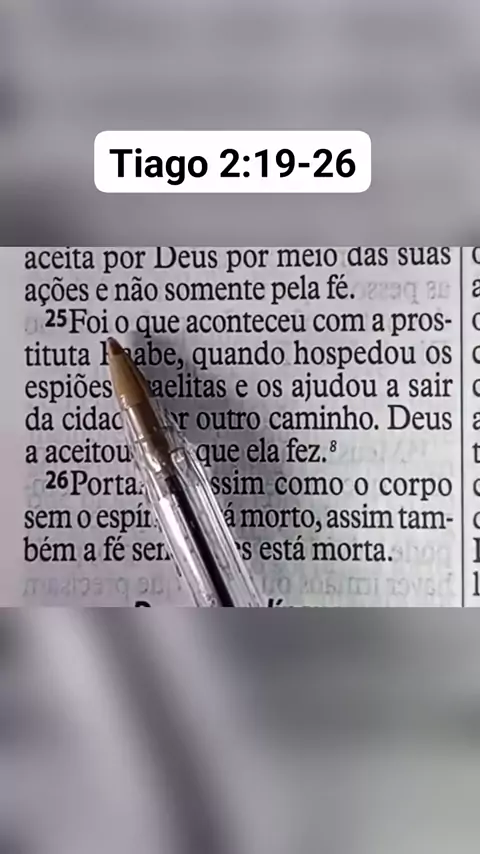 Tiago 2:19-26
aceita por Deus por meio das suas
ações e não somente pela fé.
25Foi o que aconteceu com a pros-
tituta, quando hospedou os
espiões e os ajudou a sair
da outro caminho. Deus
a aceitou que ela fez.⁸
26 como o corpo
sem o morto, assim tam-
bém a fé está morta.